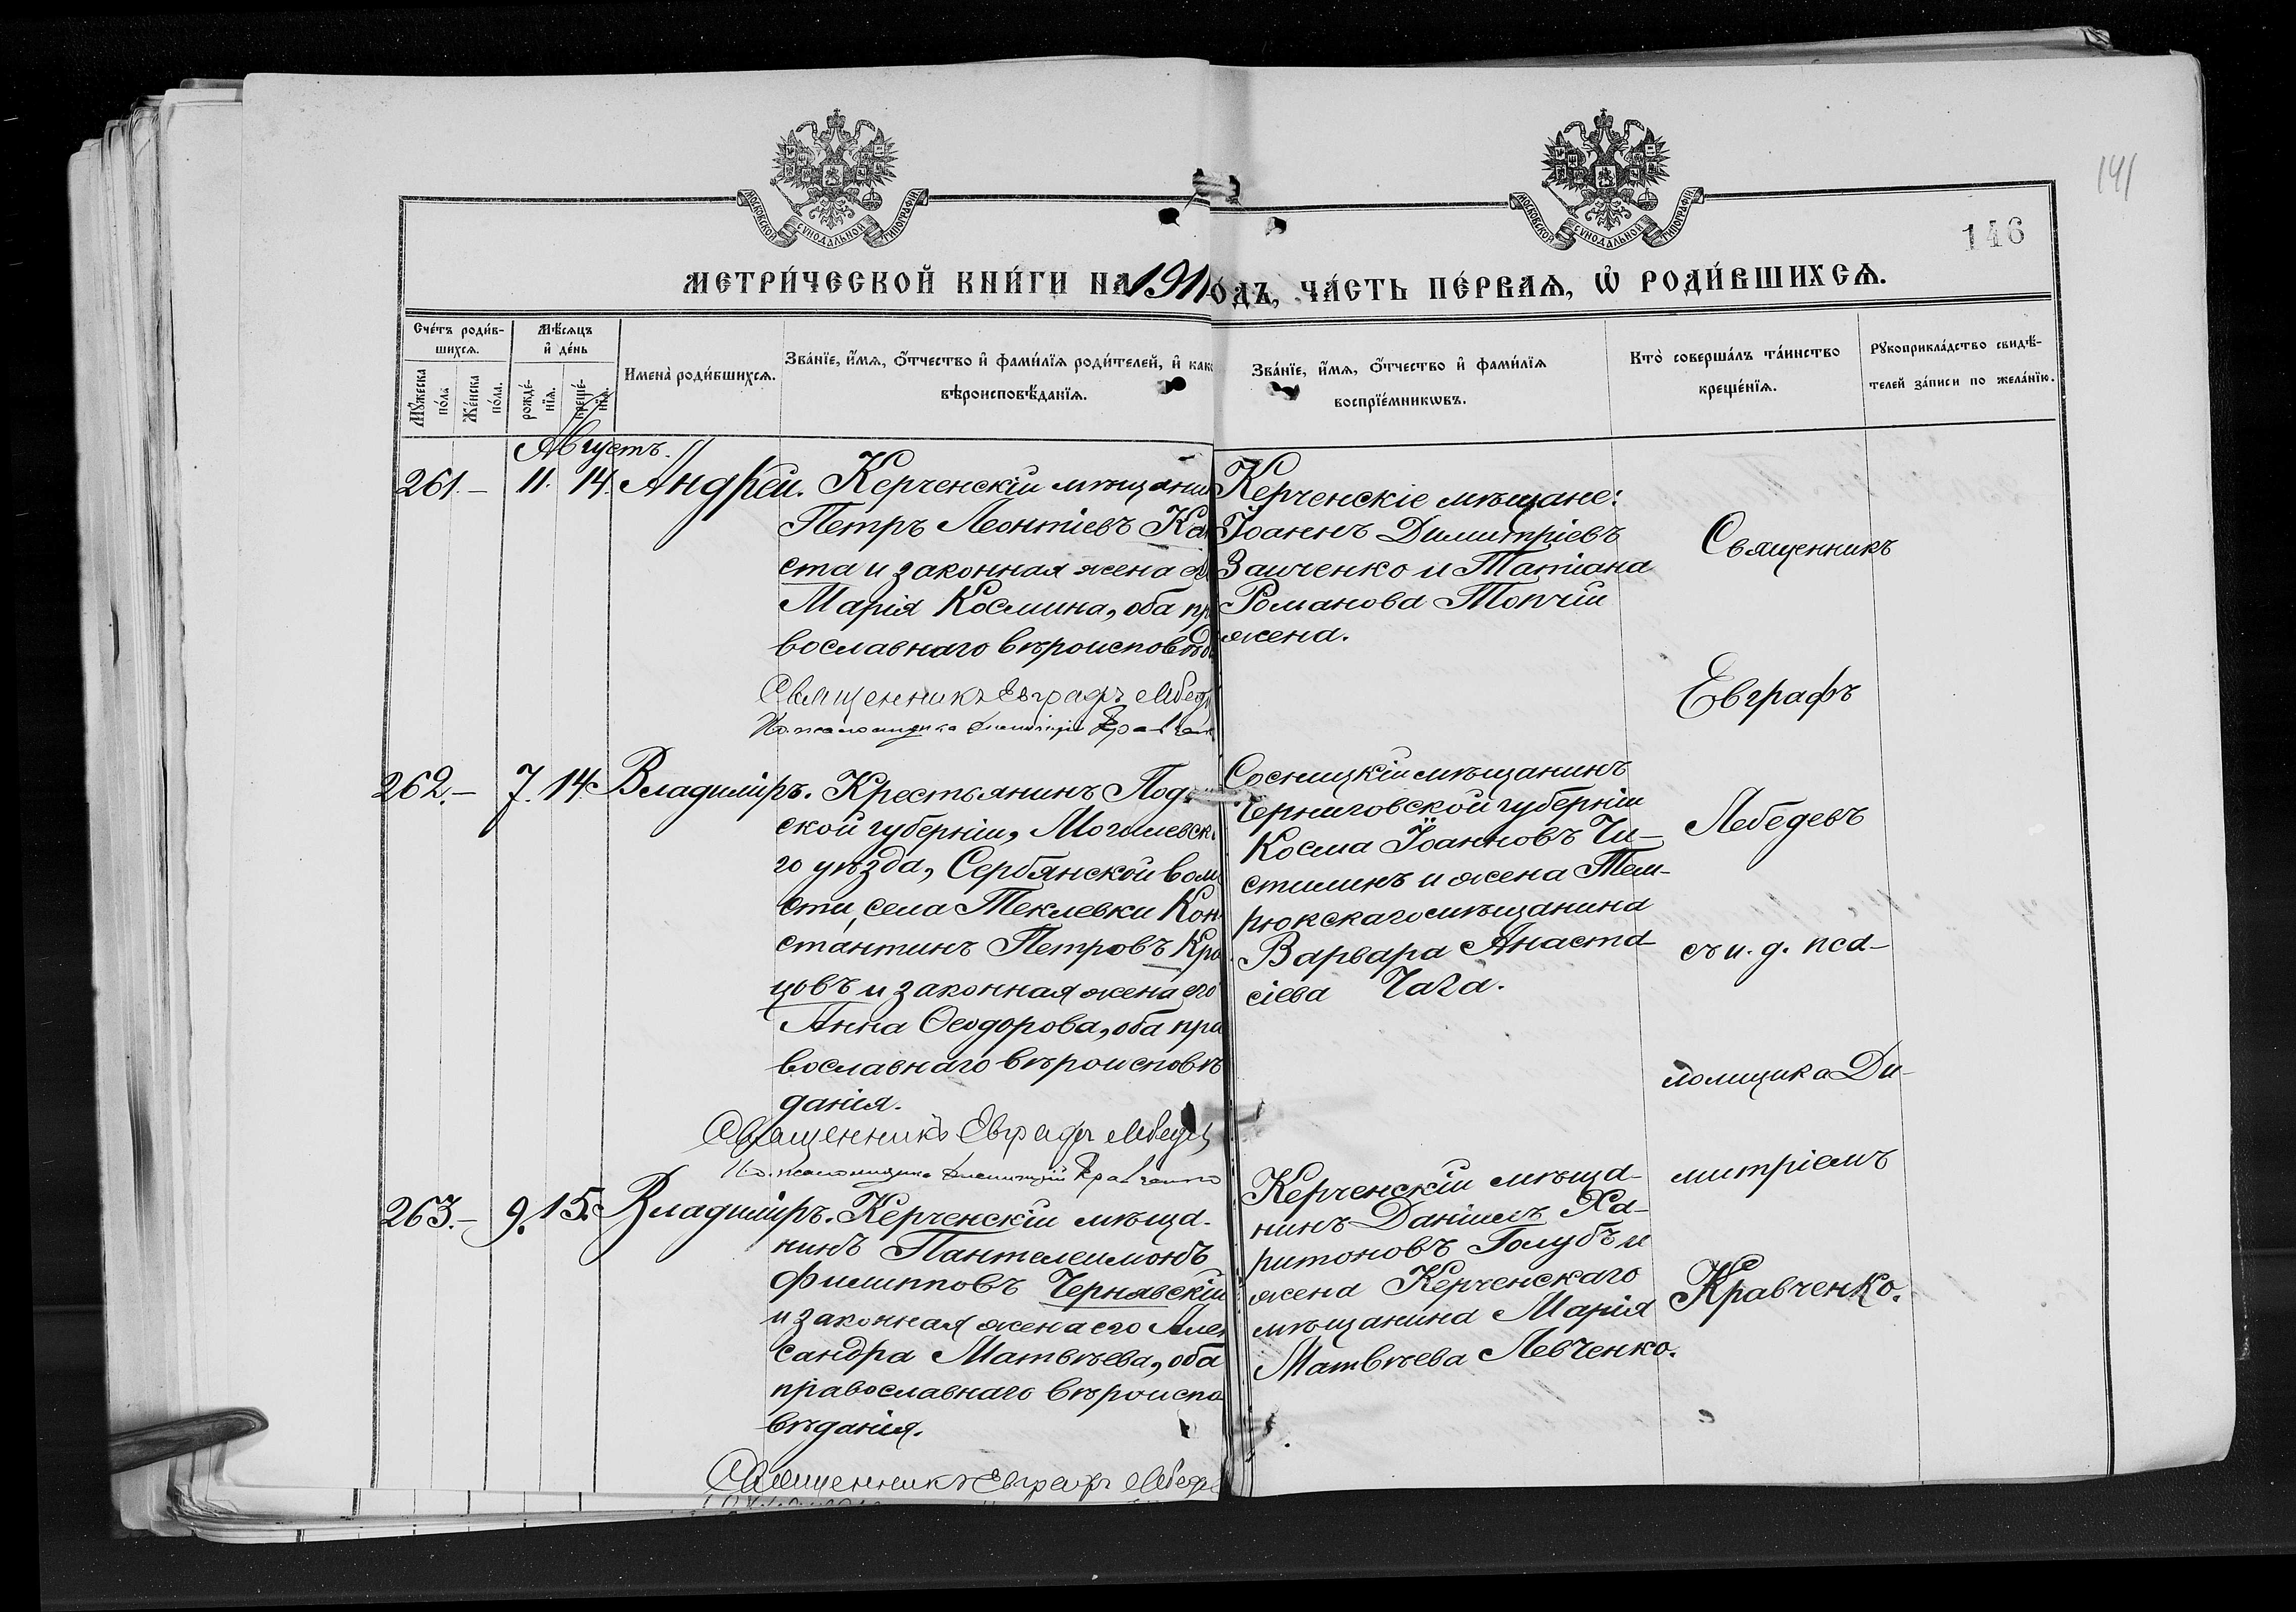 141
146
МОСКОВСКОЙ СѴНОДАЛЬНОЙ ТИПОГРАФІИ
МОСКОВСКОЙ СѴНОДАЛЬНОЙ ТИПОГРАФІИ
МЕТРИ́ЧЕСКОЙ КНИ́ГИ НА 1911 ОДЪ, ЧА́СТЬ ПЕ́РВАѦ, Ѡ҆ РОДИ́ВШИХСѦ.
Сче́тъ роди́в-
шихсѧ.
Мꙋ́жеска по́ла
Же́нска по́ла.
Мѣ́сѧцъ
и҆ де́нь
рожде́-
нїѧ.
креще́-
нїѧ.
Имена̀ роди́вшихсѧ.
Зва́нїе, и҆́мѧ, ѻ҆́тчество и҆ фами́лїѧ роди́телей, и҆ како
вѣроисповѣ́данїѧ.
Зва́нїе, и҆́мѧ, ѻ҆́тчество и҆ фами́лїѧ
воспрїе́мникѡвъ.
Кто̀ соверша́лъ та́инство
креще́нїѧ.
Рꙋкоприкла́дство свидѣ́-
телей за́писи по жела́нїю.
Августъ.
261. – 11. 14. Андрей. Керченскій мѣщанин
Петръ Леонтіевъ Ка
ста и законная жена
Марія Космина, оба пр
вославнаго вѣроисповѣд
Священникъ Евграфъ Лебед
Псаломщика Димитрій Кравченк
Керченскіе мѣщане:
Іоаннъ Димитріевъ
Заиченко и Татіана
Романова Топчій
жена.
262. – 7. 14. Владиміръ. Крестьянинъ Под
ской губерніи, Могилевск
го уѣзда, Сербянской вол
сти, села Теклевки Кон
стантинъ Петровъ Кра
цовъ и законная жена его
Анна Ѳеодорова, оба пра
вославнаго вѣроисповѣ
данія.
Священникъ Евграфъ Лебед
псаломщика Димитрій Кравченко
Сосницкій мѣщанинъ
Черниговской губерніи
Косма Іоанновъ Чи-
стилинъ и жена Тем-
рюкскаго мѣщанина
Варвара Анаста-
сіева Чага.
263. – 9. 15. Владиміръ. Керченскій мѣща-
нинъ Пантелеимонъ
Филипповъ Чернявскій
и законная жена его Алек
сандра Матвѣева, оба
православнаго вѣроиспо
вѣданія.
Священникъ Евграфъ Лебед
Керченскій мѣща-
нинъ Даніилъ Ха-
ритоновъ Голубъ и
жена Керченскаго
мѣщанина Марія
Матвѣева Левченко.
Священникъ
Евграфъ
Лебедевъ
съ и. д. пса-
ломщика Ди-
митріемъ
Кравченко.